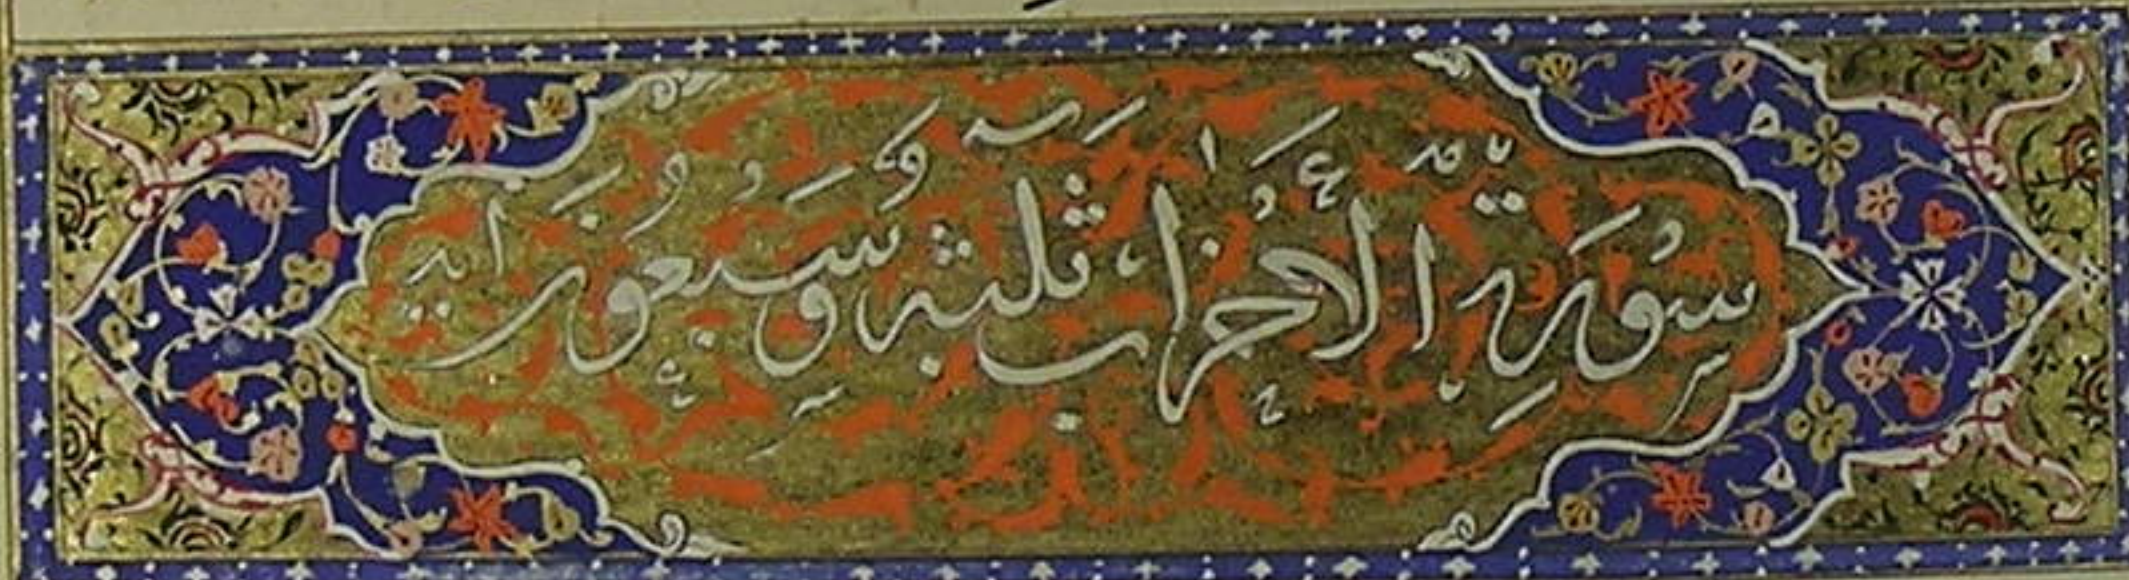 سُورَةُ الْأَحْزَابِ ثَلٰثَةٌ وَّسَبْعُوْنَ اٰيَة